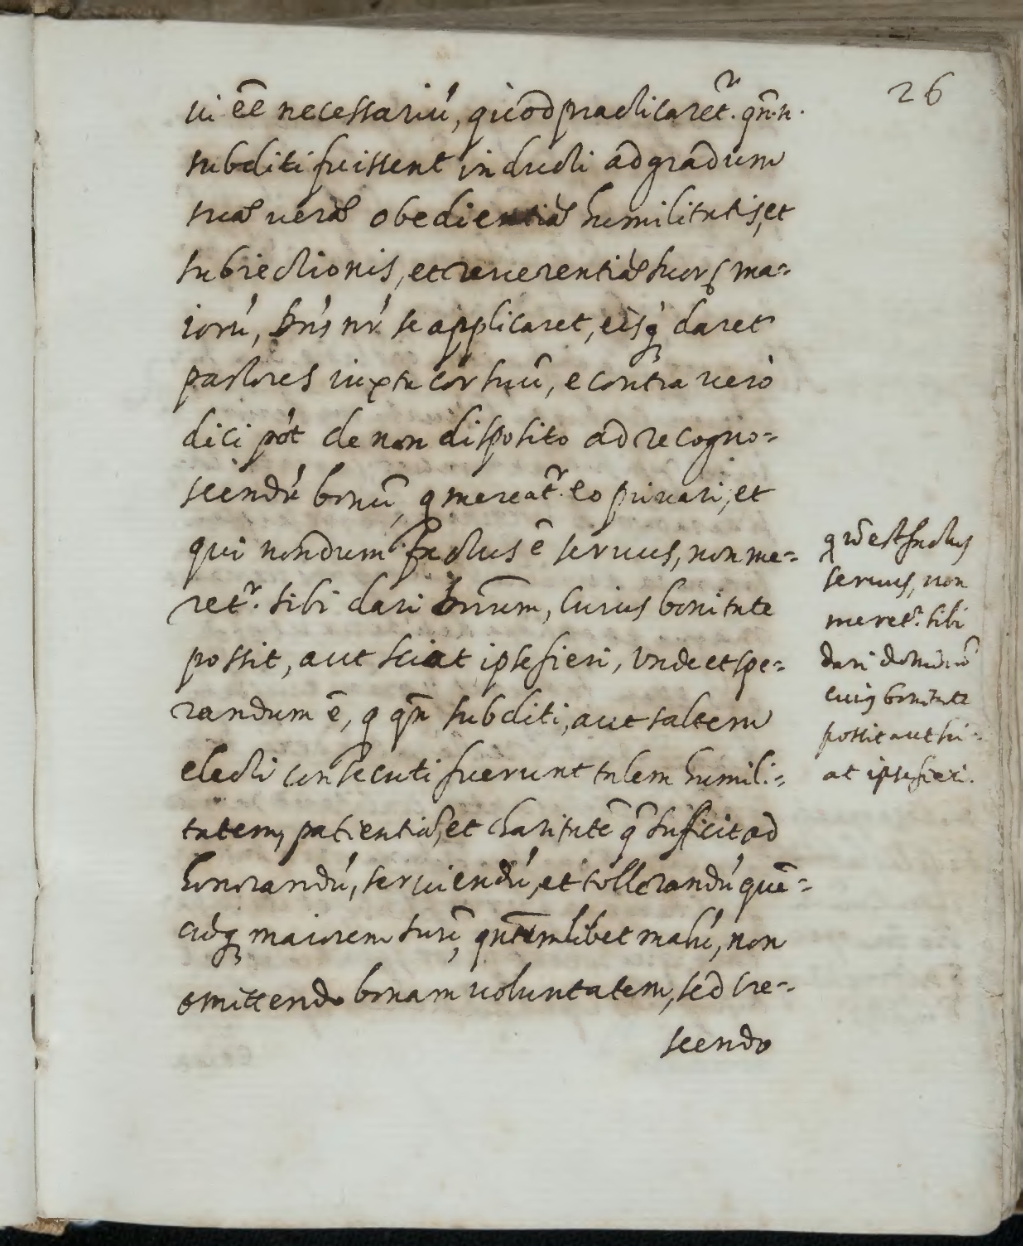 26
ui eē necessariú, quod practicaret.r qñ.n.
subditi fuissent inducti ad gradum
suae verae obedientiae humilitatis, et
subiectionis, et reverentiae suorꝝ ma-
iorú, Dñs nr̃ se applicaret, eisq; daret
pastores iuxta cor suū, e contra verò
dici pót de non disposito ad recogno-
scendú bonū, q mereat.r eo privari, et
qui nondum factus ē servus, non me-
ret.r sibi dari Dñum, cuius bonitate
possit, aut sciat ipse fieri, unde et spe-
randum ē, q qñ subditi, aut saltem
electi consecuti fuerunt talem humili-
tatem, patientiā, et charitatē q̄ sufficit ad
honorandú, serviendú, et tollerandú quē-
cúq; maiorem suū, qñtumlibet malú, non
omittendo bonam voluntatem, sed cre-
scendo
est factus
servus, non
meret.r sibi
dari dominū
cuiq bonitate
possit aut sci-
at ipse fieri.